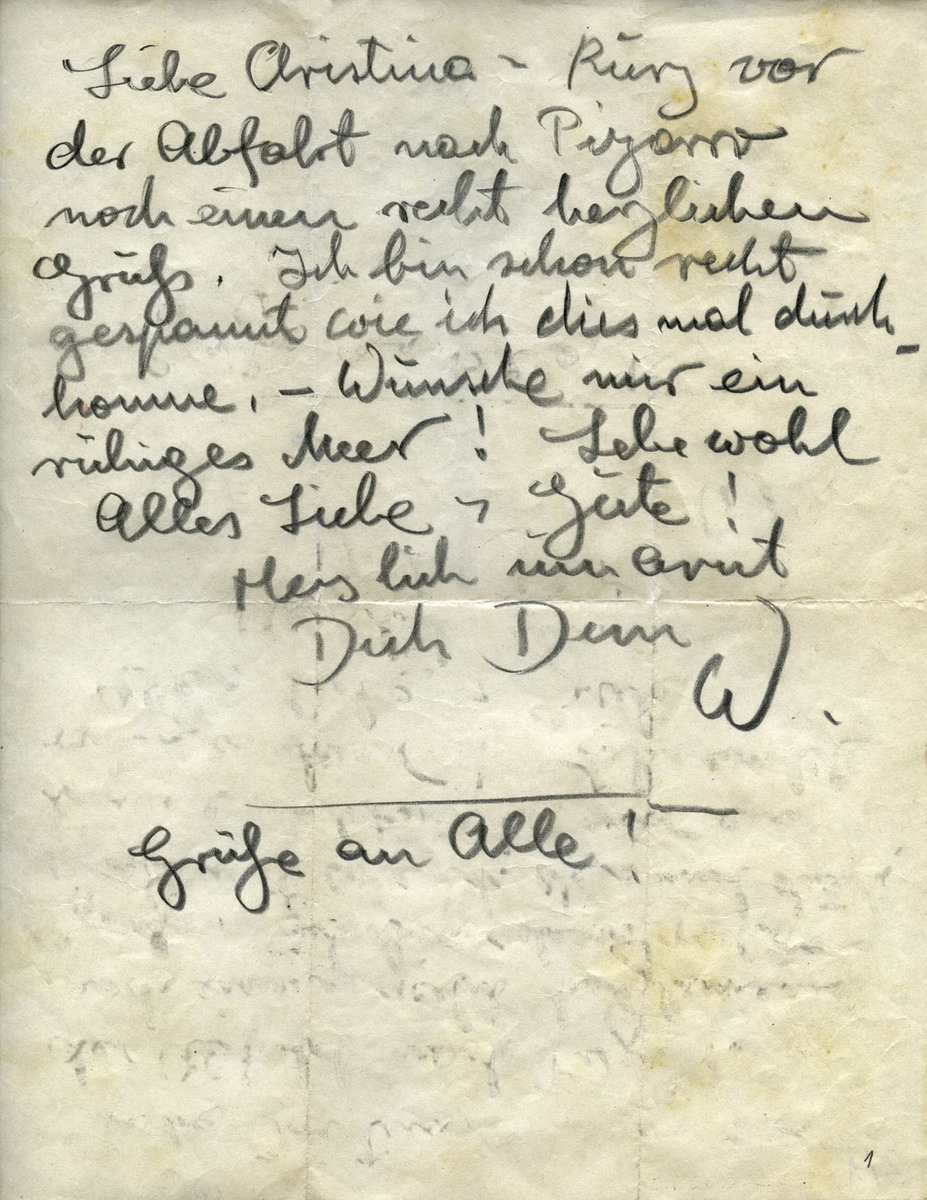 Liebe Christina – Kurz vor
der Abfahrt nach Pizarro
noch einen recht herzlichen
Gruß. Ich bin schon recht
gespannt wie ich dies mal durch-
komme. – Wünsche mir ein
ruhiges Meer! Lebe wohl
Alles Liebe u Gute!
Herzlich umarmt
Dich Dein
W.
Grüße an Alle!
1